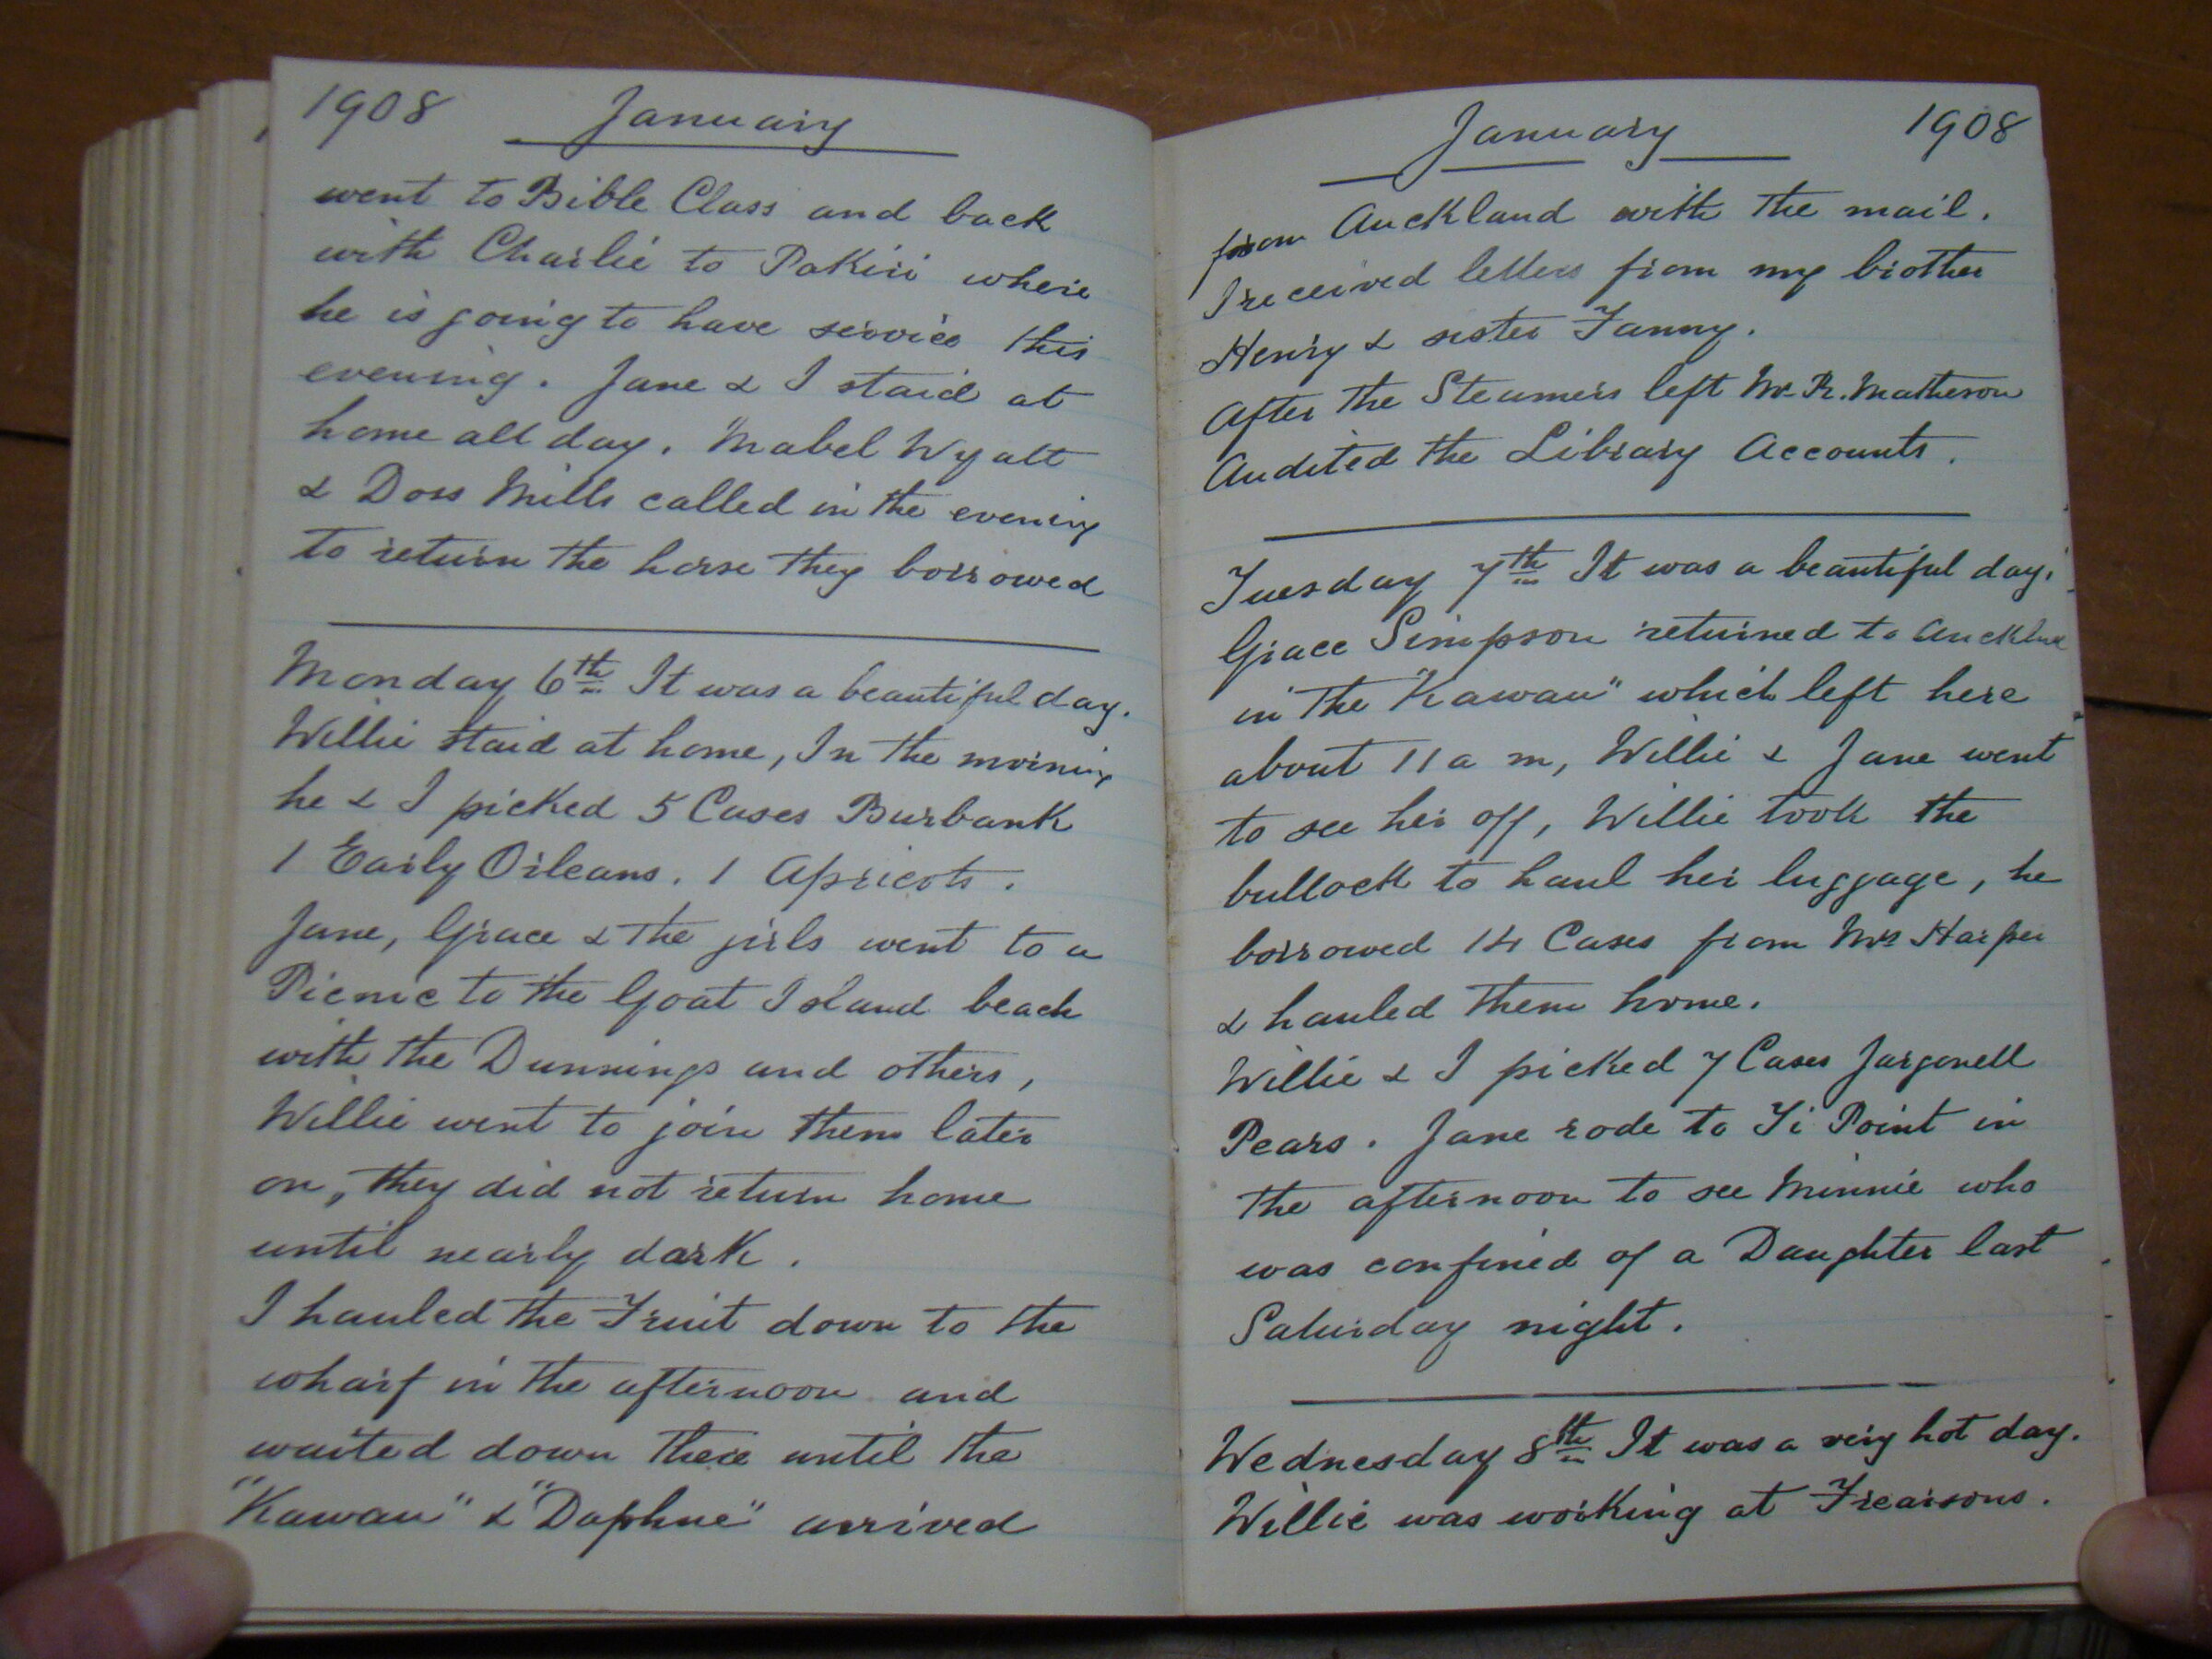 1908 January
went to Bible Class and back
with Charlie to Pakiri where
he is going to have service this
evening. Jane & I staid at
home all day. Mabel Wyatt
& Doss Mills called in the evening
to return the horse they borrowed
Monday 6th It was a beautiful day.
Willie staid at home, In the morning
he & I picked 5 Cases Burbank
1 Early Orleans. 1 Apricots.
Jane, Grace & the girls went to a
Picnic to the Goat Island beach
with the Dunnings and others,
Willie went to join them later
on, they did not return home
until nearly dark.
I hauled the Fruit down to the
wharf in the afternoon and
waited down there until the
"Kawau" & "Daphne" arrived
January 1908
from Auckland with the mail.
I received letters from my brother
Henry & sister Fanny.
After the Steamers left Mr. R. Matheson
Audited the Library Accounts.
Tuesday 7th It was a beautiful day.
Grace Simpson returned to Auckland
in the "Kawau" which left here
about 11 a m, Willie & Jane went
to see her off, Willie took the
bullock to haul her luggage, he
borrowed 14 Cases from Mrs Harper
& hauled them home.
Willie & I picked 7 Cases Jargonell
Pears. Jane rode to Ti Point in
the afternoon to see Minnie who
was confined of a Daughter last
Saturday night.
Wednesday 8th It was a very hot day.
Willie was working at Frearsons.